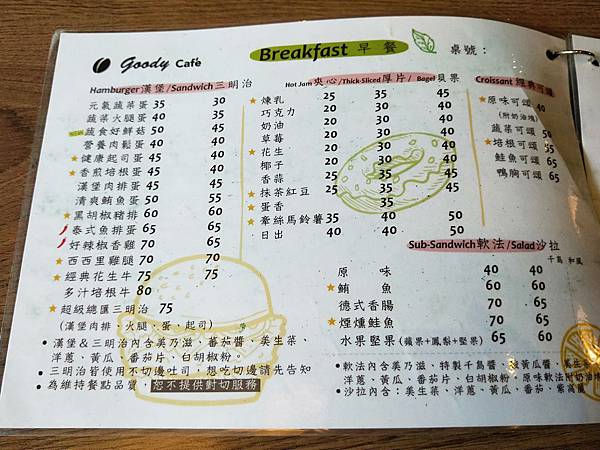 goody Cafe
Breakfast 早餐
桌號：
Hamburger漢堡/Sandwich三明治
元氣蔬菜蛋 35 30
蔬菜火腿蛋 40 40
蔬食好鮮菇 50 45
營養肉鬆蛋 40 40
★健康起司蛋 45 40
★香煎培根蛋 45 40
漢堡肉排蛋 45 45
清爽鮪魚蛋 50 55
★黑胡椒豬排 60 60
泰式魚排蛋 65 65
好辣椒香雞 70 65
★西西里雞腿 70 70
★經典花生牛 75 75
多汁培根牛 80
★超級總匯三明治 75
(漢堡肉排、火腿、蛋、起司)
•漢堡&三明治內含美乃滋、蕃茄醬、美生菜、
洋蔥、黃瓜、番茄片、白胡椒粉。
•三明治皆使用不切邊吐司，想吃切邊請先告知
•為維持餐點品質，恕不提供對切服務
Hot Jam夾心/Thick-Sliced厚片/ Bagel貝果
★煉乳 25 35 45
巧克力
奶油
草莓
★花生
椰子
香蒜
★抹茶紅豆
★蛋香
★牽絲馬鈴薯 35 40 50
日出 40 40 50
Croissant 經典可頌
★原味可頌 40
(附奶油塊)
蔬菜可頌 50
★培根可頌
鮭魚可頌 65
鴨胸可頌 65
Sub-Sandwich軟法/Salad沙拉
千島 和風
原味 40 40
★鮪魚 60 60
德式香腸 70 65
★煙燻鮭魚 70 65
水果堅果(蘋果+鳳梨+堅果) 65 65
•軟法內含美乃滋、特製千島醬、
洋蔥、黃瓜、番茄片、白胡椒粉。原味軟法附奶油塊
•沙拉內含：美生菜、洋蔥、黃瓜、番茄、紫高麗